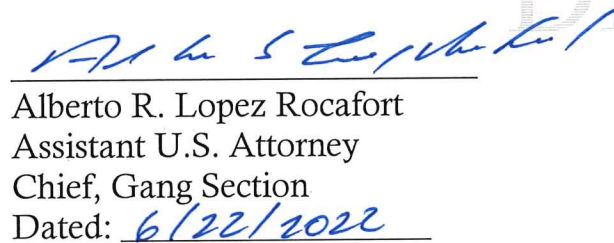 Alberto R. Lopez Rocafort
Assistant U.S. Attorney
Chief, Gang Section
Dated: 6/22/2022